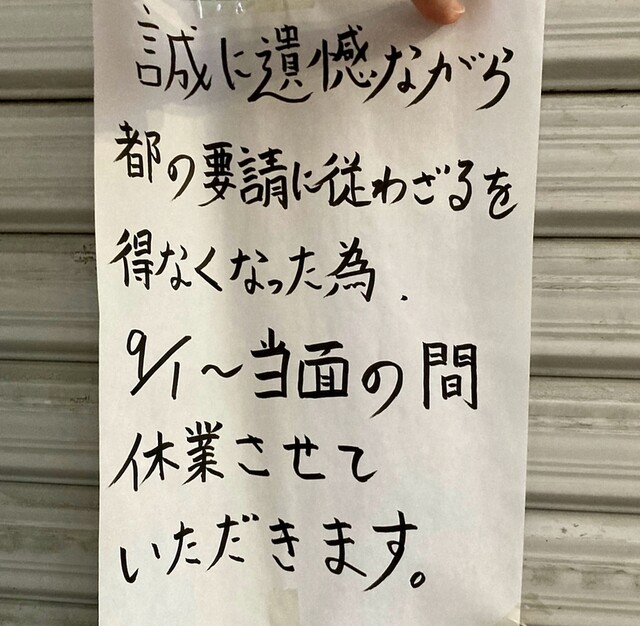 誠に遺憾ながら
都の要請に従わざるを
得なくなった為、
9/1〜当面の間
休業させて
いただきます。